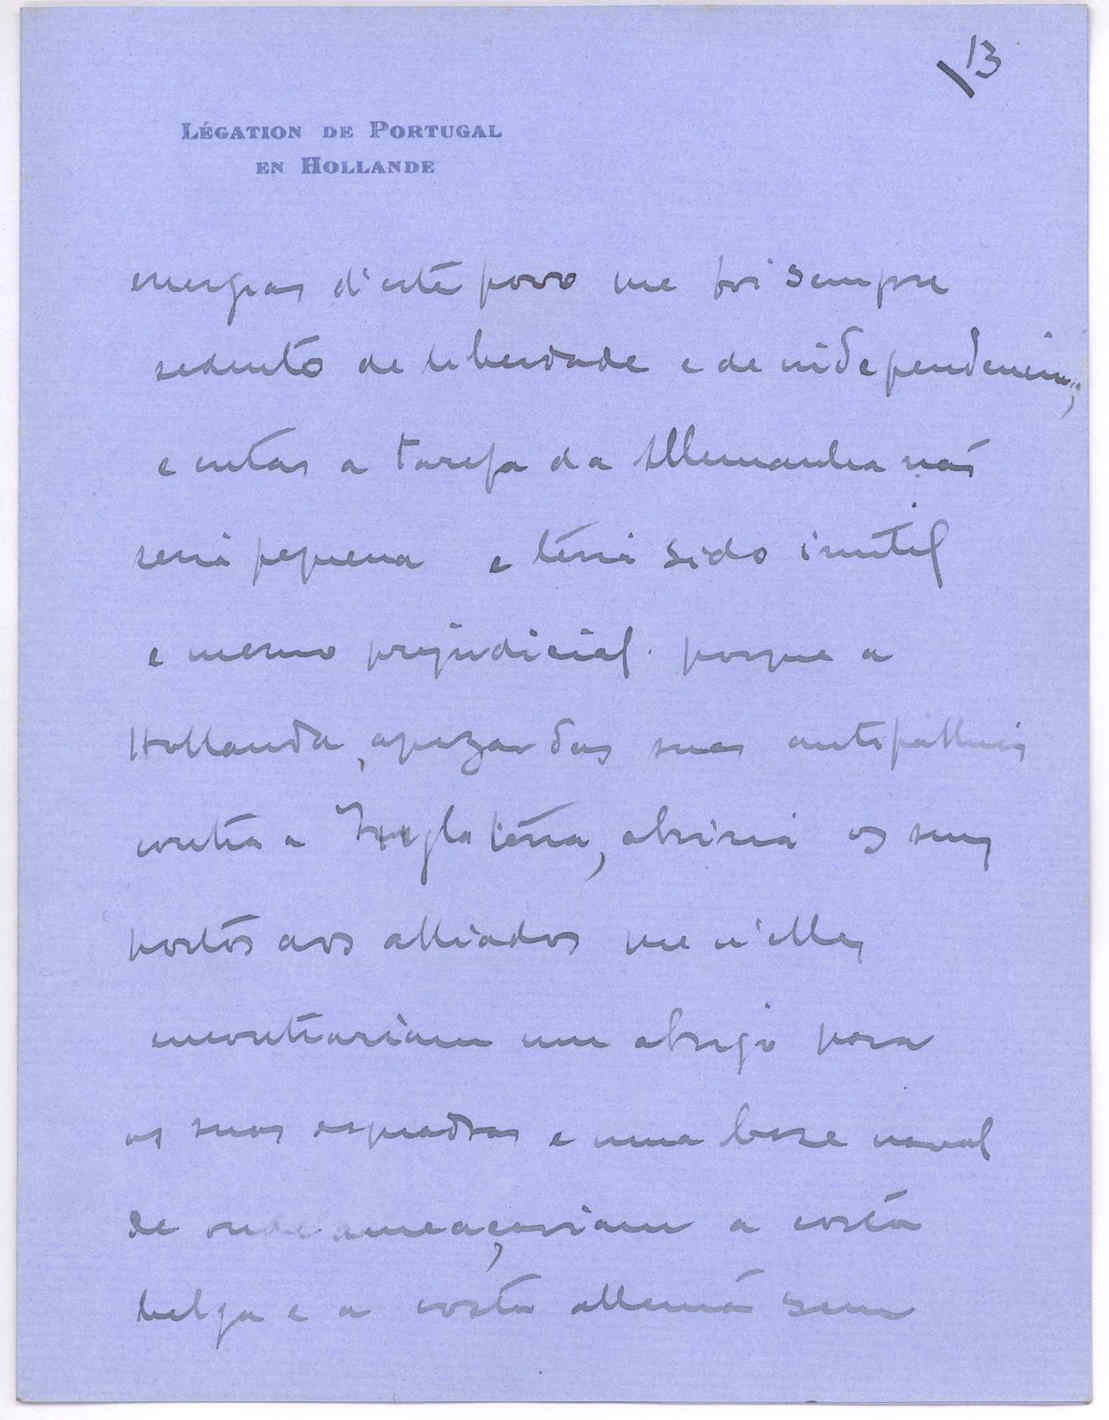 13
LÉGATION DE PORTUGAL
EN HOLLANDE
energias d'este povo que foi sempre
sedento de liberdade e de independencia;
e entao a tarefa da Allemanha não
seria pequena e teria sido inutil
e mesmo prejudicial porque a
Hollanda, apezar das suas antipathias
contra a Inglaterra, abriria os seus
portos aos alliados que n'elles
encontrariam um abrigo para
as suas esquadras e uma base naval
de onde ameaçariam a costa
belga e a costa allemã sem